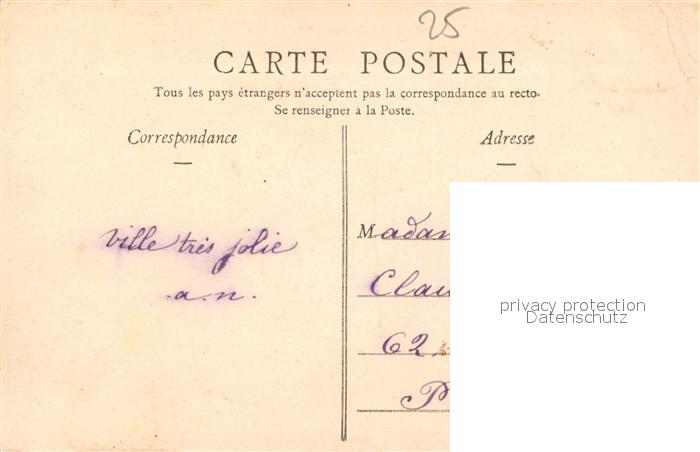 25
CARTE POSTALE
Tous les pays étrangers n'acceptent pas la correspondance au recto.
Se renseigner à la Poste.
Correspondance
Adresse
ville très jolie
a. n.
Madam
Clau
62
P
privacy protection
Datenschutz